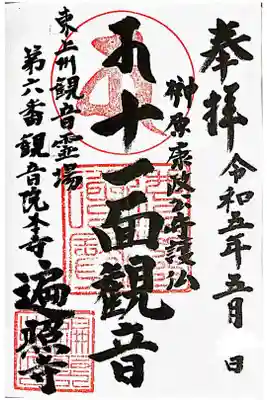 奉拝 令和五年五月 日
榊原康政公守護仏
十一面観音
東上州観音霊場
第六番観音院本寺
遍照寺